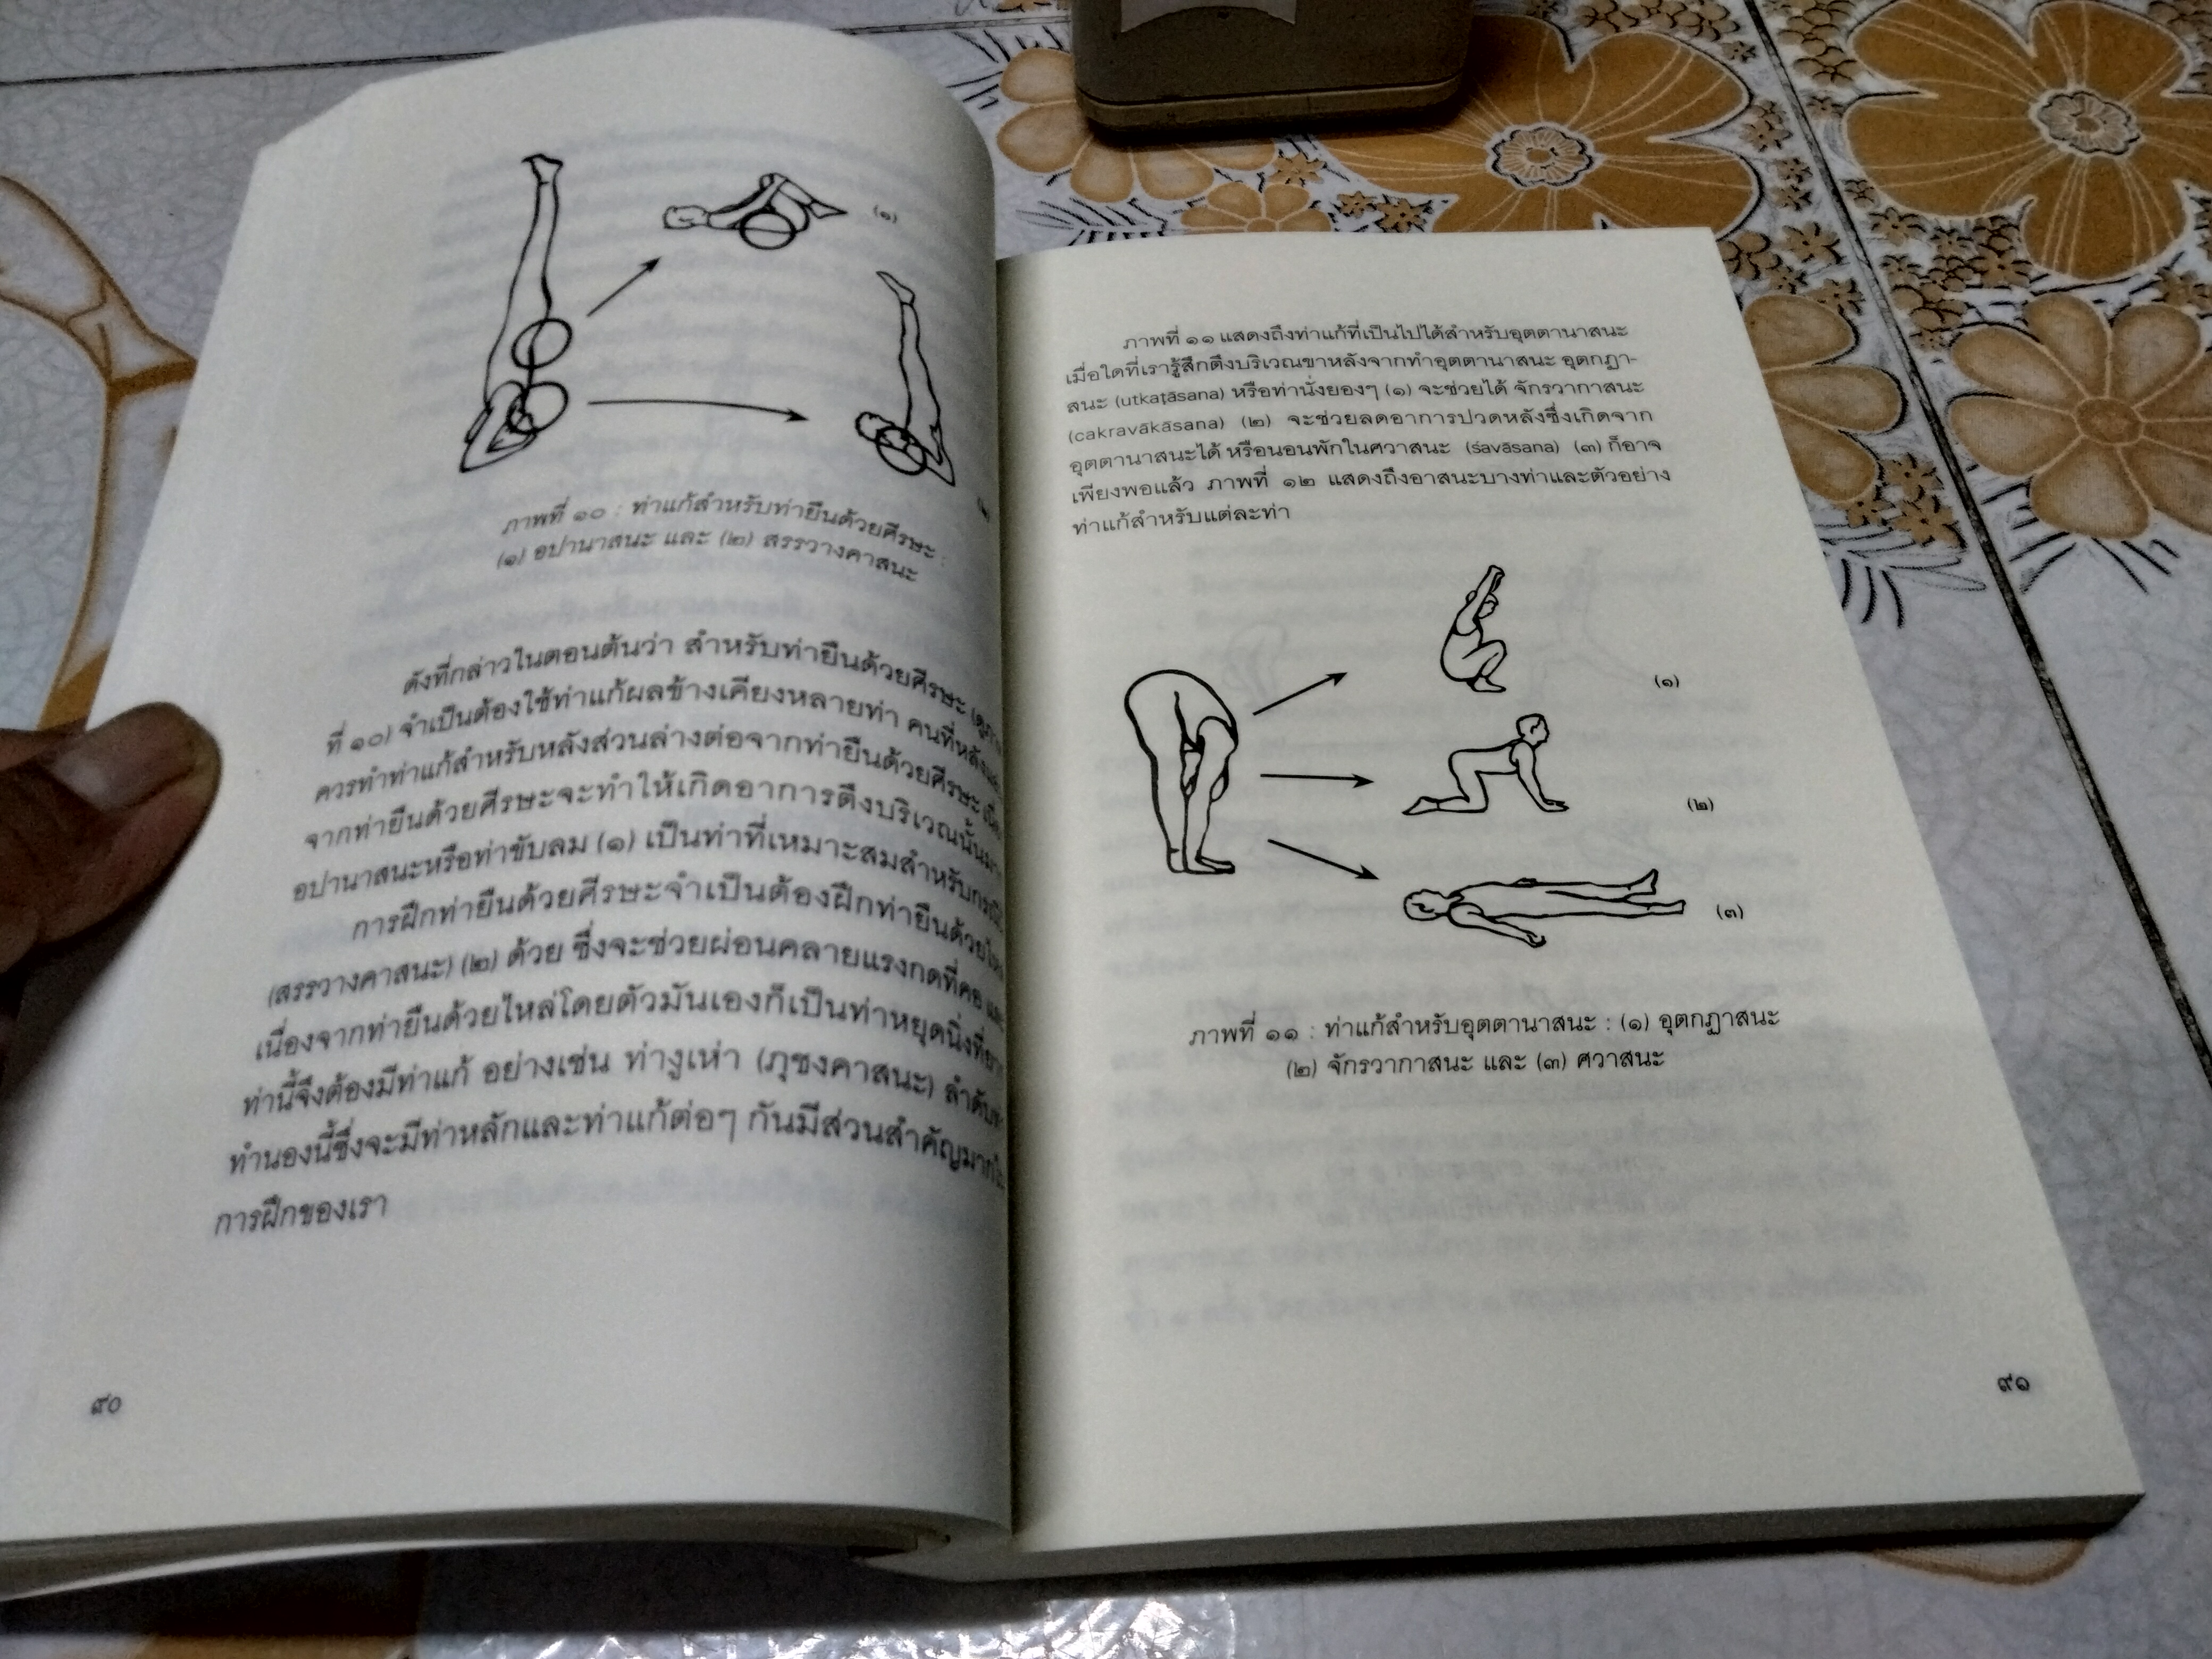 (๑)
ภาพที่ ๑๐ : ท่าแก้สำหรับท่ายืนด้วยศีรษะ :
(๑) อปานาสนะ และ (๒) สรรวางคาสนะ
ดังที่กล่าวในตอนต้นว่า สำหรับท่ายืนด้วยศีรษะ
ที่ ๑๐) จำเป็นต้องใช้ท่าแก้ผลข้างเคียงหลายท่า คนที่หลัง
ควรทำท่าแก้สำหรับหลังส่วนล่างต่อจากท่ายืนด้วยศีรษะ
จากท่ายืนด้วยศีรษะจะทำให้เกิดอาการตึงบริเวณนั้น
อปานาสนะหรือท่าขับลม (๑) เป็นท่าที่เหมาะสมสำหรับ
การฝึกท่ายืนด้วยศีรษะจำเป็นต้องฝึกท่ายืนด้วย
(สรรวางคาสนะ) (๒) ด้วย ซึ่งจะช่วยผ่อนคลายแรงกดที่คอ
เนื่องจากท่ายืนด้วยไหล่โดยตัวมันเองก็เป็นท่าหยุดนิ่งที่
ท่านี้จึงต้องมีท่าแก้ อย่างเช่น ท่างูเห่า (ภุชงคาสนะ)
ทำนองนี้ซึ่งจะมีท่าหลักและท่าแก้ต่อๆ กันมีส่วนสำคัญ
การฝึกของเรา
๙๐
ภาพที่ ๑๑ แสดงถึงท่าแก้ที่เป็นไปได้สำหรับอุตตานาสนะ
เมื่อใดที่เรารู้สึกตึงบริเวณขาหลังจากทำอุตตานาสนะ อุตกฏา-
สนะ (utkaṭāsana) หรือท่านั่งยองๆ (๑) จะช่วยได้ จักรวากาสนะ
(cakravākāsana) (๒) จะช่วยลดอาการปวดหลังซึ่งเกิดจาก
อุตตานาสนะได้ หรือนอนพักในศวาสนะ (śavāsana) (๓) ก็อาจ
เพียงพอแล้ว ภาพที่ ๑๒ แสดงถึงอาสนะบางท่าและตัวอย่าง
ท่าแก้สำหรับแต่ละท่า
(๑)
(๒)
(๓)
ภาพที่ ๑๑ : ท่าแก้สำหรับอุตตานาสนะ : (๑) อุตกฏาสนะ
(๒) จักรวากาสนะ และ (๓) ศวาสนะ
๙๑